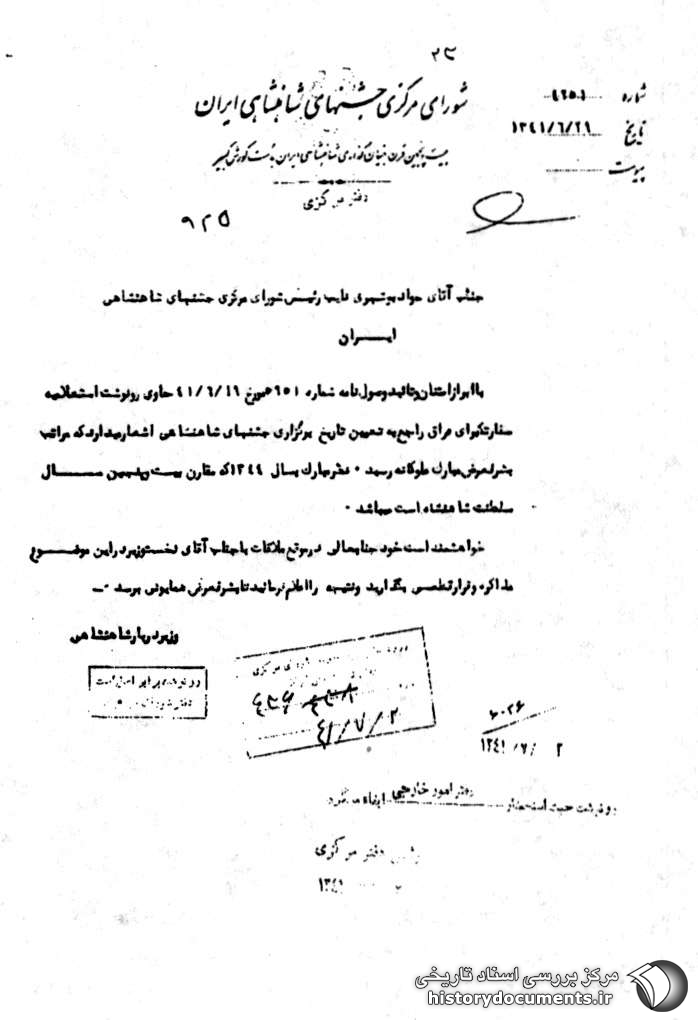 ۲۳
شورای مرکزی جشنهای شاهنشاهی ایران
بیست و پنجمین قرن بنیان گذاری شاهنشاهی ایران بدست کورش کبیر
دفتر مرکزی
شماره
تاریخ ۱۳۴۱/۶/۲۹
پیوست
۹۲۵
جناب آقای جواد بوشهری نایب رئیس شورای مرکزی جشنهای شاهنشاهی
ایــران
با ابراز امتنان و تائید وصول نامه شماره ۶۵۱ مورخ ۴۱/۶/۱۹ حاوی رونوشت استعلامیه
سفارتکبرای عراق راجع به تعیین تاریخ برگزاری جشنهای شاهنشاهی اشعار میدارد که مراتب
بشرفعرض مبارک ملوکانه رسید ۰ نظر مبارک بسال ۱۳۴۴ که مقارن بیست و پنجمین ســـال
سلطنت شاهنشاه است میباشد ۰
خواهشمند است خود جنابعالی در موقع ملاقات با جناب آقای نخست وزیر در این موضــوع
مذاکره و قرار قطعی بگذارید و نتیجه را اعلام فرمائید تا بشرفعرض همایونی برسد ۰ــ
وزیر دربار شاهنشاهی
رونوشت برابر اصل است
مرکزی
۴۱/۷/۲
۶۰۲۶
رونوشت جهت استحضار دفتر امور خارجی ایفاد میگردد
رئیس دفتر مرکزی
۱۳۴۱
مرکز بررسی اسناد تاریخی
historydocuments.ir